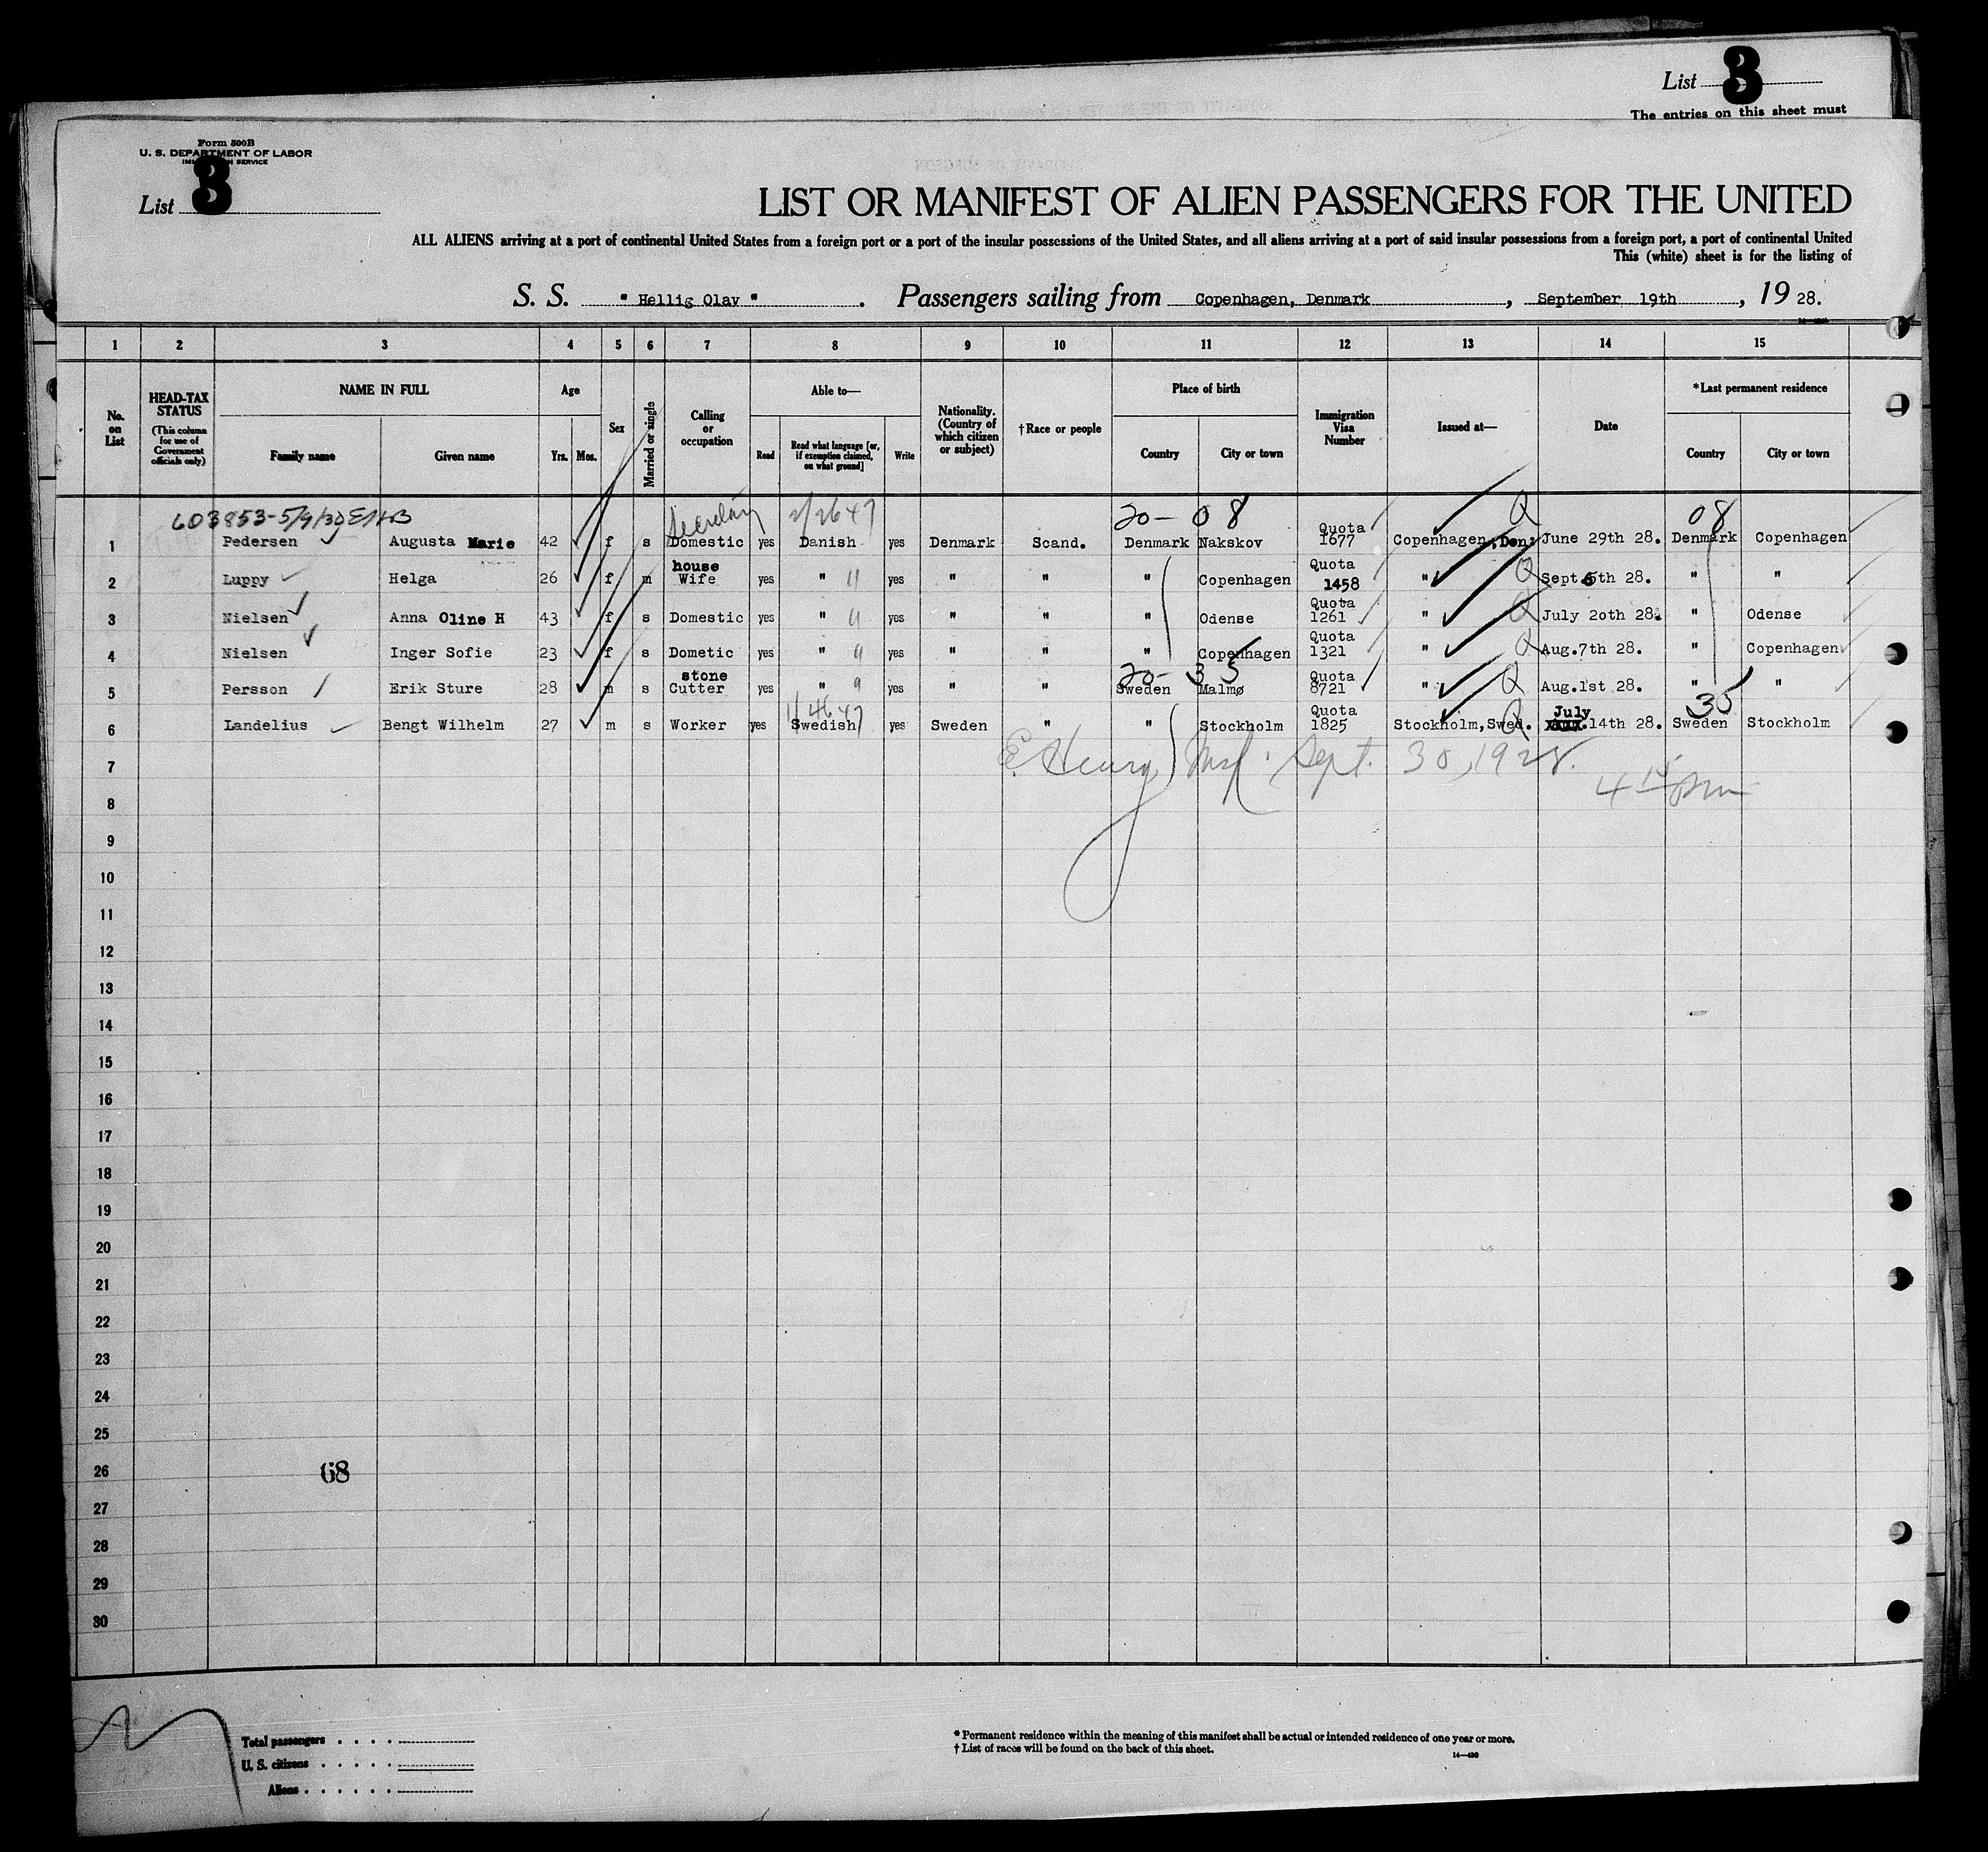 List 3
The entries on this sheet must
Form 500B
U. S. DEPARTMENT OF LABOR
IMMIGRATION SERVICE
List 3
LIST OR MANIFEST OF ALIEN PASSENGERS FOR THE UNITED
ALL ALIENS arriving at a port of continental United States from a foreign port or a port of the insular possessions of the United States, and all aliens arriving at a port of said insular possessions from a foreign port, a port of continental United
This (white) sheet is for the listing of
S. S. " Hellig Olav " . Passengers sailing from Copenhagen, Denmark , September 19th , 19 28.
1 2 3 4 5 6 7 8 9 10 11 12 13 14 15
No. on List
HEAD-TAX STATUS
(This column for use of Government officials only)
NAME IN FULL
Family name Given name
Age
Yrs. Mos.
Sex
Married or single
Calling or occupation
Able to—
Read
Read what language [or, if exemption claimed, on what ground]
Write
Nationality. (Country of which citizen or subject)
†Race or people
Place of birth
Country City or town
Immigration Visa Number
Issued at—
Date
*Last permanent residence
Country City or town
603853-5/9/30
Secretary 2/2647 20- 08 Q 08
1 Pedersen Augusta Marie 42 f s Domestic yes Danish yes Denmark Scand. Denmark Nakskov Quota 1677 Copenhagen,Den; June 29th 28. Denmark Copenhagen
2 Luppy Helga 26 f m house Wife yes " " yes " " " Copenhagen Quota 1458 " Q Sept.6th 28. " "
3 Nielsen Anna Oline H 43 f s Domestic yes " " yes " " " Odense Quota 1261 " Q July 2oth 28. " Odense
4 Nielsen Inger Sofie 23 f s Dometic yes " " yes " " " Copenhagen Quota 1321 " Q Aug.7th 28. " Copenhagen
20- 35
5 Persson Erik Sture 28 m s stone Cutter yes " " yes " " Sweden Malmø Quota 8721 " Q Aug.1st 28. " "
35
6 Landelius Bengt Wilhelm 27 m s Worker yes Swedish yes Sweden " " Stockholm Quota 1825 Stockholm,Swed. Q July 14th 28. Sweden Stockholm
E. Henry Insp. Sept. 30, 1928.
7
4 15 pm
8
9
10
11
12
13
14
15
16
17
18
19
20
21
22
23
24
25
26 68
27
28
29
30
Total passengers
U. S. citizens
Aliens
* Permanent residence within the meaning of this manifest shall be actual or intended residence of one year or more.
† List of races will be found on the back of this sheet.
14—430